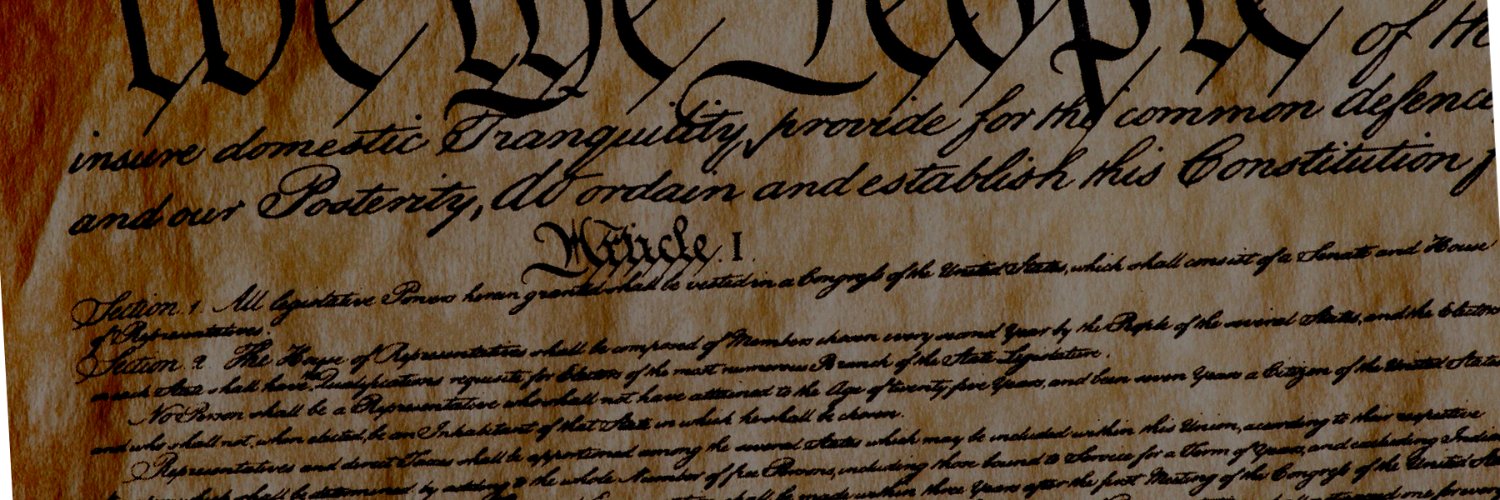 We the People of
insure domestic Tranquility, provide for the common defence,
and our Posterity, do ordain and establish this Constitution
Article. I.
Section. 1. All legislative Powers herein granted shall be vested in a Congress of the United States, which shall consist of a Senate and House
of Representatives.
Section. 2. The House of Representatives shall be composed of Members chosen every second Year by the People of the several States, and the Electors
in each State shall have the Qualifications requisite for Electors of the most numerous Branch of the State Legislature.
No Person shall be a Representative who shall not have attained to the Age of twenty five Years, and been seven Years a Citizen of the United States
and who shall not, when elected, be an Inhabitant of that State in which he shall be chosen.
Representatives and direct Taxes shall be apportioned among the several States which may be included within this Union, according to their respective
which shall be determined by adding to the whole Number of free Persons, including those bound to Service for a Term of Years, and excluding
shall be made within three Years after the first Meeting of the Congress of the United